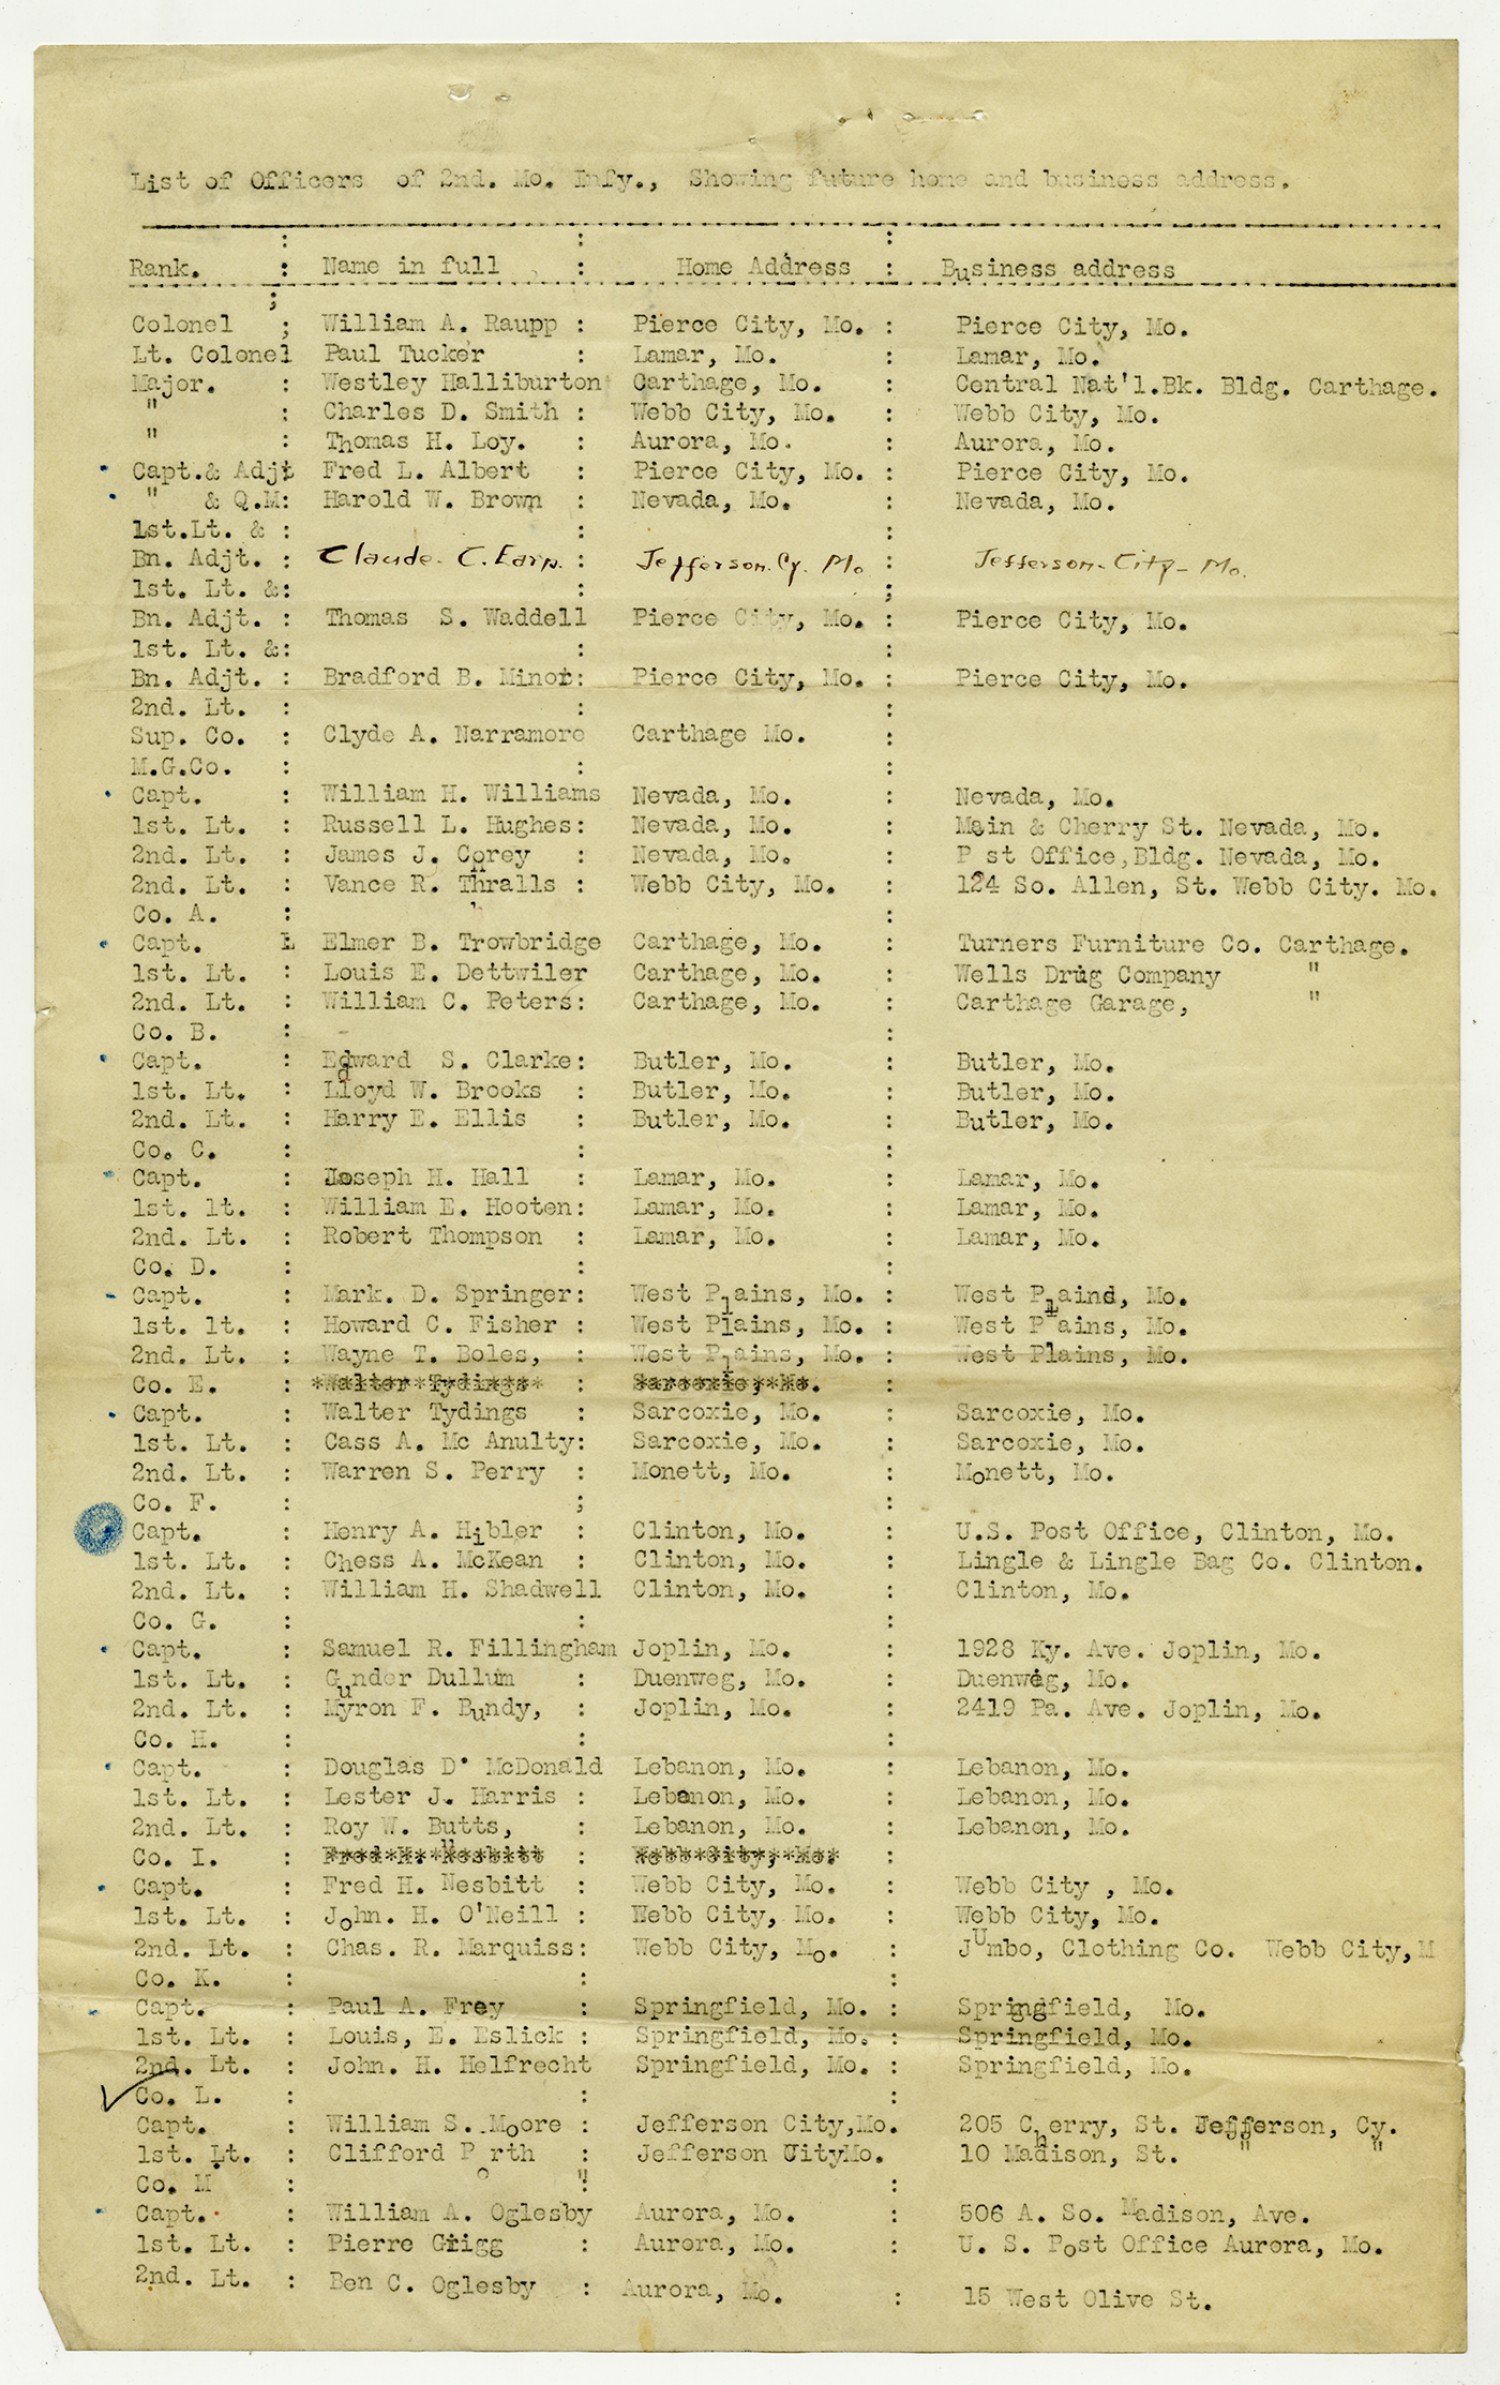 List of Officers of 2nd. Mo. Infy., Showing future home and business address.
Rank. : Name in full : Home Address : Business address
Colonel ; William A. Raupp : Pierce City, Mo. : Pierce City, Mo.
Lt. Colonel Paul Tucker : Lamar, Mo. : Lamar, Mo.
Major. : Westley Halliburton Carthage, Mo. : Central Nat'l.Bk. Bldg. Carthage.
" : Charles D. Smith : Webb City, Mo. : Webb City, Mo.
" : Thomas H. Loy. : Aurora, Mo. : Aurora, Mo.
Capt.& Adjt Fred L. Albert : Pierce City, Mo. : Pierce City, Mo.
" & Q.M: Harold W. Brown : Nevada, Mo. : Nevada, Mo.
1st.Lt. & : : :
Bn. Adjt. : Claude. C. Earp. : Jefferson. Cy. Mo : Jefferson- City- Mo.
1st. Lt. &: : ;
Bn. Adjt. : Thomas S. Waddell Pierce City, Mo. : Pierce City, Mo.
1st. Lt. &: : :
Bn. Adjt. : Bradford B. Minor: Pierce City, Mo. : Pierce City, Mo.
2nd. Lt. : : :
Sup. Co. : Clyde A. Narramore Carthage Mo. :
M.G.Co. : : :
Capt. : William H. Williams Nevada, Mo. : Nevada, Mo.
1st. Lt. : Russell L. Hughes: Nevada, Mo. : Main & Cherry St. Nevada, Mo.
2nd. Lt. : James J. Corey : Nevada, Mo. : P st Office,Bldg. Nevada, Mo.
2nd. Lt. : Vance R. Thralls : Webb City, Mo. : 124 So. Allen, St. Webb City. Mo.
Co. A. : :
Capt. L Elmer B. Trowbridge Carthage, Mo. : Turners Furniture Co. Carthage.
1st. Lt. : Louis E. Dettwiler Carthage, Mo. : Wells Drug Company "
2nd. Lt. : William C. Peters: Carthage, Mo. : Carthage Garage, "
Co. B. : :
Capt. : Edward S. Clarke: Butler, Mo. : Butler, Mo.
1st. Lt. : Lloyd W. Brooks : Butler, Mo. : Butler, Mo.
2nd. Lt. : Harry E. Ellis : Butler, Mo. : Butler, Mo.
Co. C. : : :
Capt. : Joseph H. Hall : Lamar, Mo. : Lamar, Mo.
1st. lt. : William E. Hooten: Lamar, Mo. : Lamar, Mo.
2nd. Lt. : Robert Thompson : Lamar, Mo. : Lamar, Mo.
Co. D. : : :
Capt. : Mark. D. Springer: West Plains, Mo. : West Plains, Mo.
1st. lt. : Howard C. Fisher : West Plains, Mo. : West P ains, Mo.
2nd. Lt. : Wayne T. Boles, : West Plains, Mo. : West Plains, Mo.
Co. E. : *Walter*Tydings* : Sarcoxie,*Mo. :
Capt. : Walter Tydings : Sarcoxie, Mo. : Sarcoxie, Mo.
1st. Lt. : Cass A. Mc Anulty: Sarcoxie, Mo. : Sarcoxie, Mo.
2nd. Lt. : Warren S. Perry : Monett, Mo. : Monett, Mo.
Co. F. : ; :
Capt. : Henry A. Hibler : Clinton, Mo. : U.S. Post Office, Clinton, Mo.
1st. Lt. : Chess A. McKean : Clinton, Mo. : Lingle & Lingle Bag Co. Clinton.
2nd. Lt. : William H. Shadwell Clinton, Mo. : Clinton, Mo.
Co. G. : : :
Capt. : Samuel R. Fillingham Joplin, Mo. : 1928 Ky. Ave. Joplin, Mo.
1st. Lt. : Gunder Dullum : Duenweg, Mo. : Duenweg, Mo.
2nd. Lt. : Myron F. Bundy, : Joplin, Mo. : 2419 Pa. Ave. Joplin, Mo.
Co. H. : : :
Capt. : Douglas D. McDonald Lebanon, Mo. : Lebanon, Mo.
1st. Lt. : Lester J. Harris : Lebanon, Mo. : Lebanon, Mo.
2nd. Lt. : Roy W. Butts, : Lebanon, Mo. : Lebanon, Mo.
Co. I. : Fred*H.*Nesbitt : Webb*City,*Mo. :
Capt. : Fred H. Nesbitt : Webb City, Mo. : Webb City , Mo.
1st. Lt. : John. H. O'Neill : Webb City, Mo. : Webb City, Mo.
2nd. Lt. : Chas. R. Marquiss: Webb City, Mo. : JUmbo, Clothing Co. Webb City,M
Co. K. : : :
Capt. : Paul A. Frey : Springfield, Mo. : Springfield, Mo.
1st. Lt. : Louis, E. Eslick : Springfield, Mo. : Springfield, Mo.
2nd. Lt. : John. H. Helfrecht Springfield, Mo. : Springfield, Mo.
Co. L. : : :
Capt. : William S. Moore : Jefferson City,Mo. 205 Cherry, St. Jefferson, Cy.
1st. Lt. : Clifford Porth : Jefferson CityMo. 10 Madison, St. " "
Co. M : " :
Capt. : William A. Oglesby Aurora, Mo. : 506 A. So. Madison, Ave.
1st. Lt. : Pierre Grigg : Aurora, Mo. : U. S. Post Office Aurora, Mo.
2nd. Lt. : Ben C. Oglesby : Aurora, Mo. : 15 West Olive St.